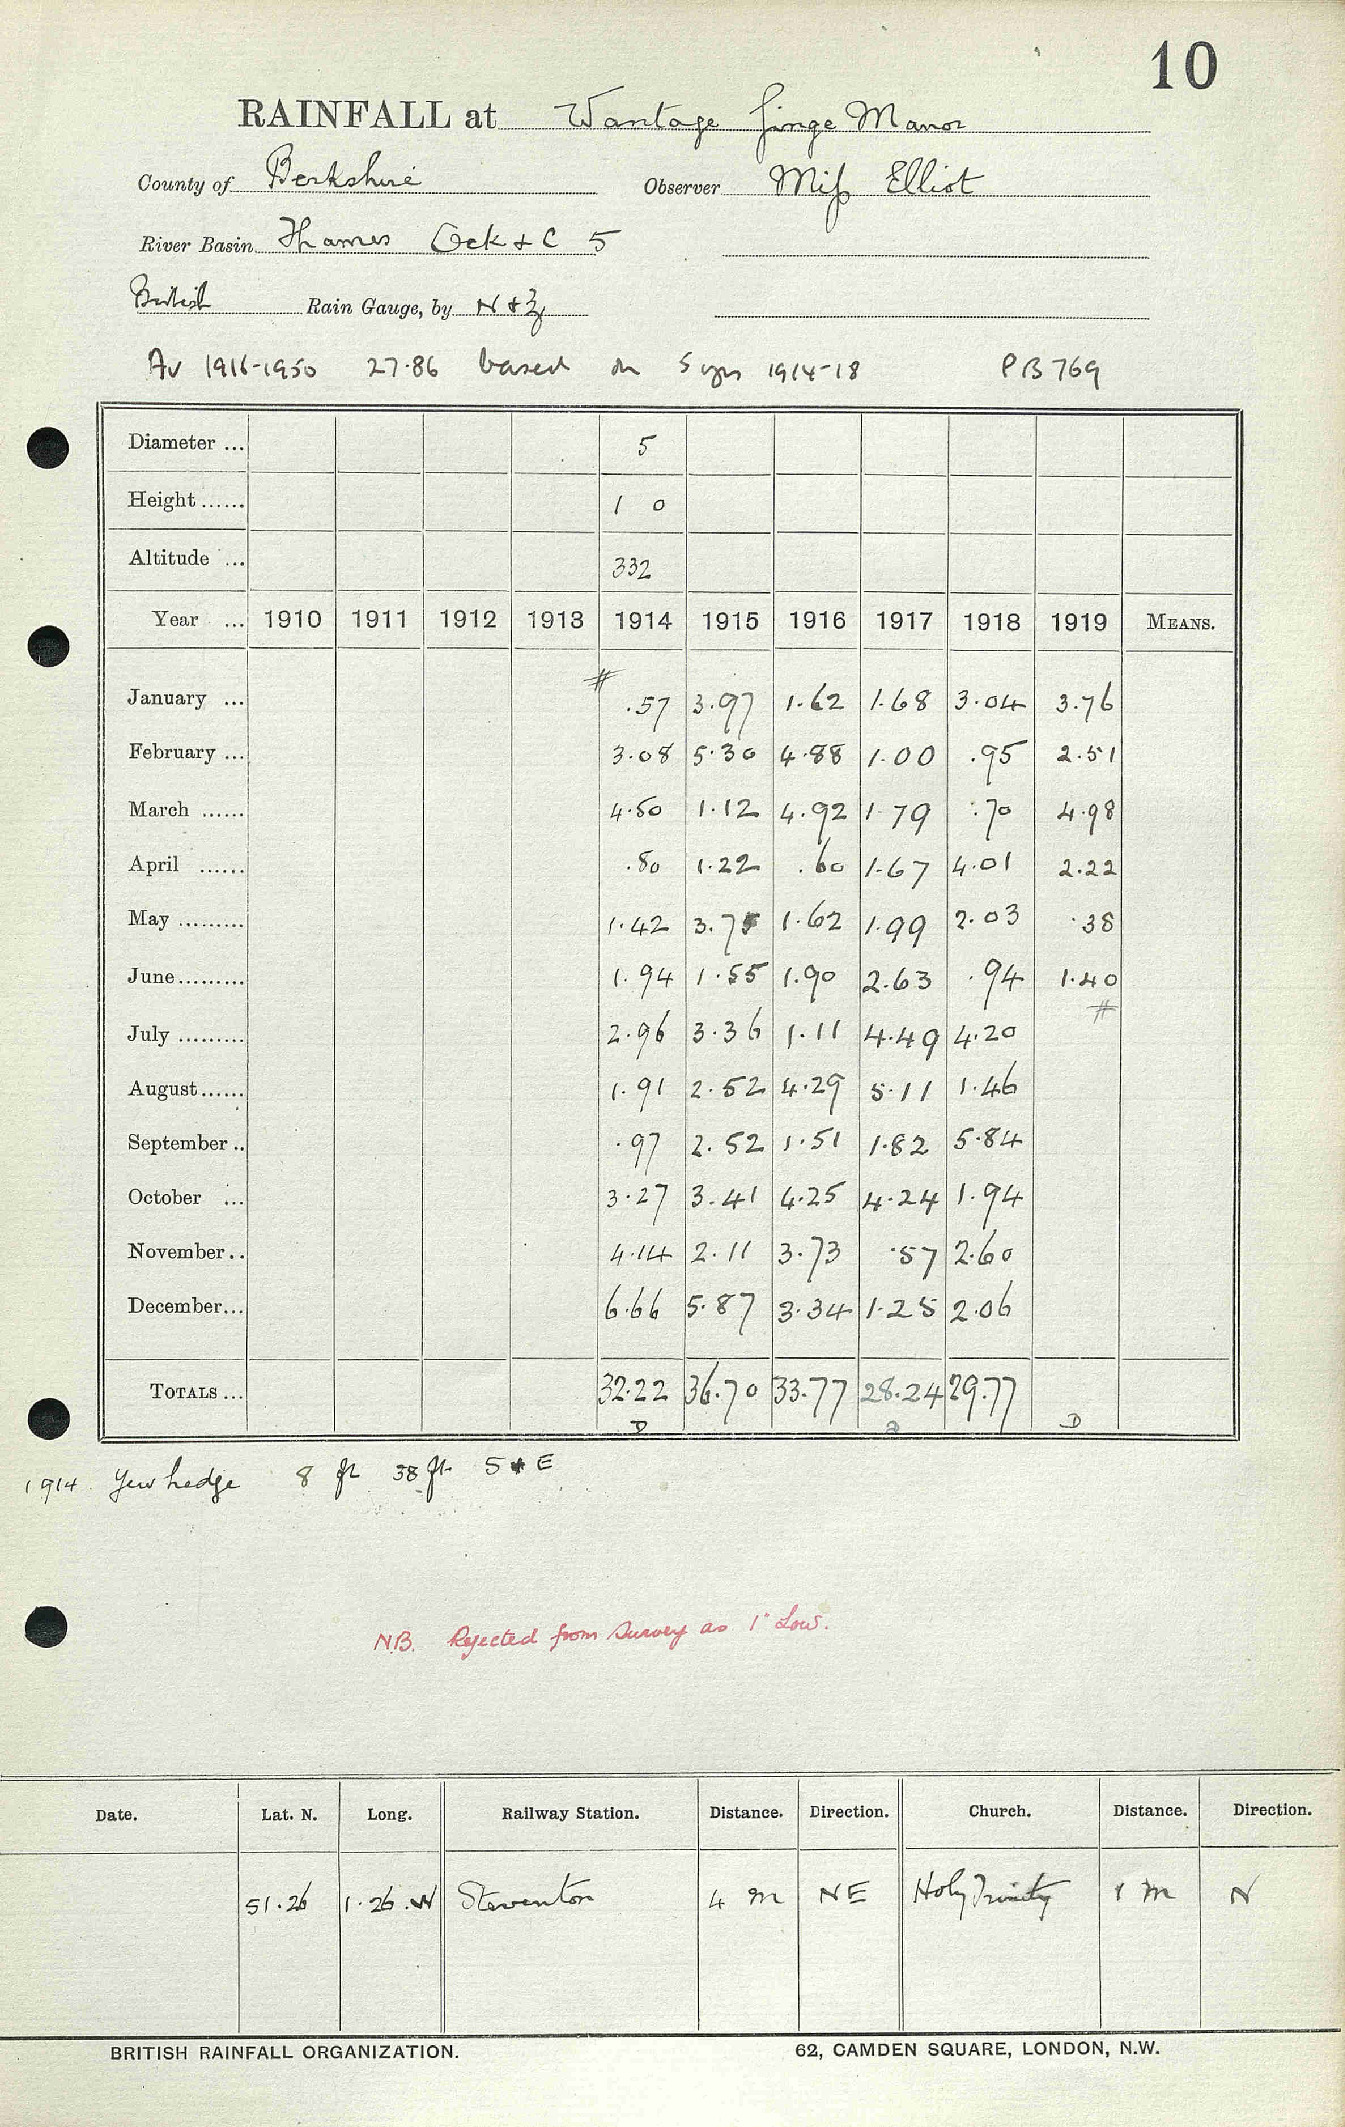 10
RAINFALL at Wantage Ginge Manor
County of Berkshire Observer Miss Elliot
River Basin Thames Ock & C 5
British Rain Gauge, by N & Z
Av 1916-1950 27.86 based on 5 yrs 1914-18 PB 769
Diameter ... 5
Height ...... 1 0
Altitude ... 332
Year ... 1910 1911 1912 1913 1914 1915 1916 1917 1918 1919 MEANS.
January ... # .57 3.97 1.62 1.68 3.04 3.76
February ... 3.08 5.30 4.88 1.00 .95 2.51
March ...... 4.50 1.12 4.92 1.79 .70 4.98
April ...... .80 1.22 .60 1.67 4.01 2.22
May ......... 1.42 3.75 1.62 1.99 2.03 .38
June ......... 1.94 1.55 1.90 2.63 .94 1.40
#
July ......... 2.96 3.36 1.11 4.49 4.20
August ...... 1.91 2.52 4.29 5.11 1.46
September .. .97 2.52 1.51 1.82 5.84
October ... 3.27 3.41 4.25 4.24 1.94
November .. 4.14 2.11 3.73 .57 2.60
December ... 6.66 5.87 3.34 1.25 2.06
TOTALS ... 32.22 36.70 33.77 28.24 29.77
D D
1914 Yew hedge 8 ft 38 ft S E
NB. Rejected from Survey as 1" Low.
Date. Lat. N. Long. Railway Station. Distance. Direction. Church. Distance. Direction.
51.26 1.26.W Steventon 4 m NE Holy Trinity 1 m N
BRITISH RAINFALL ORGANIZATION. 62, CAMDEN SQUARE, LONDON, N.W.